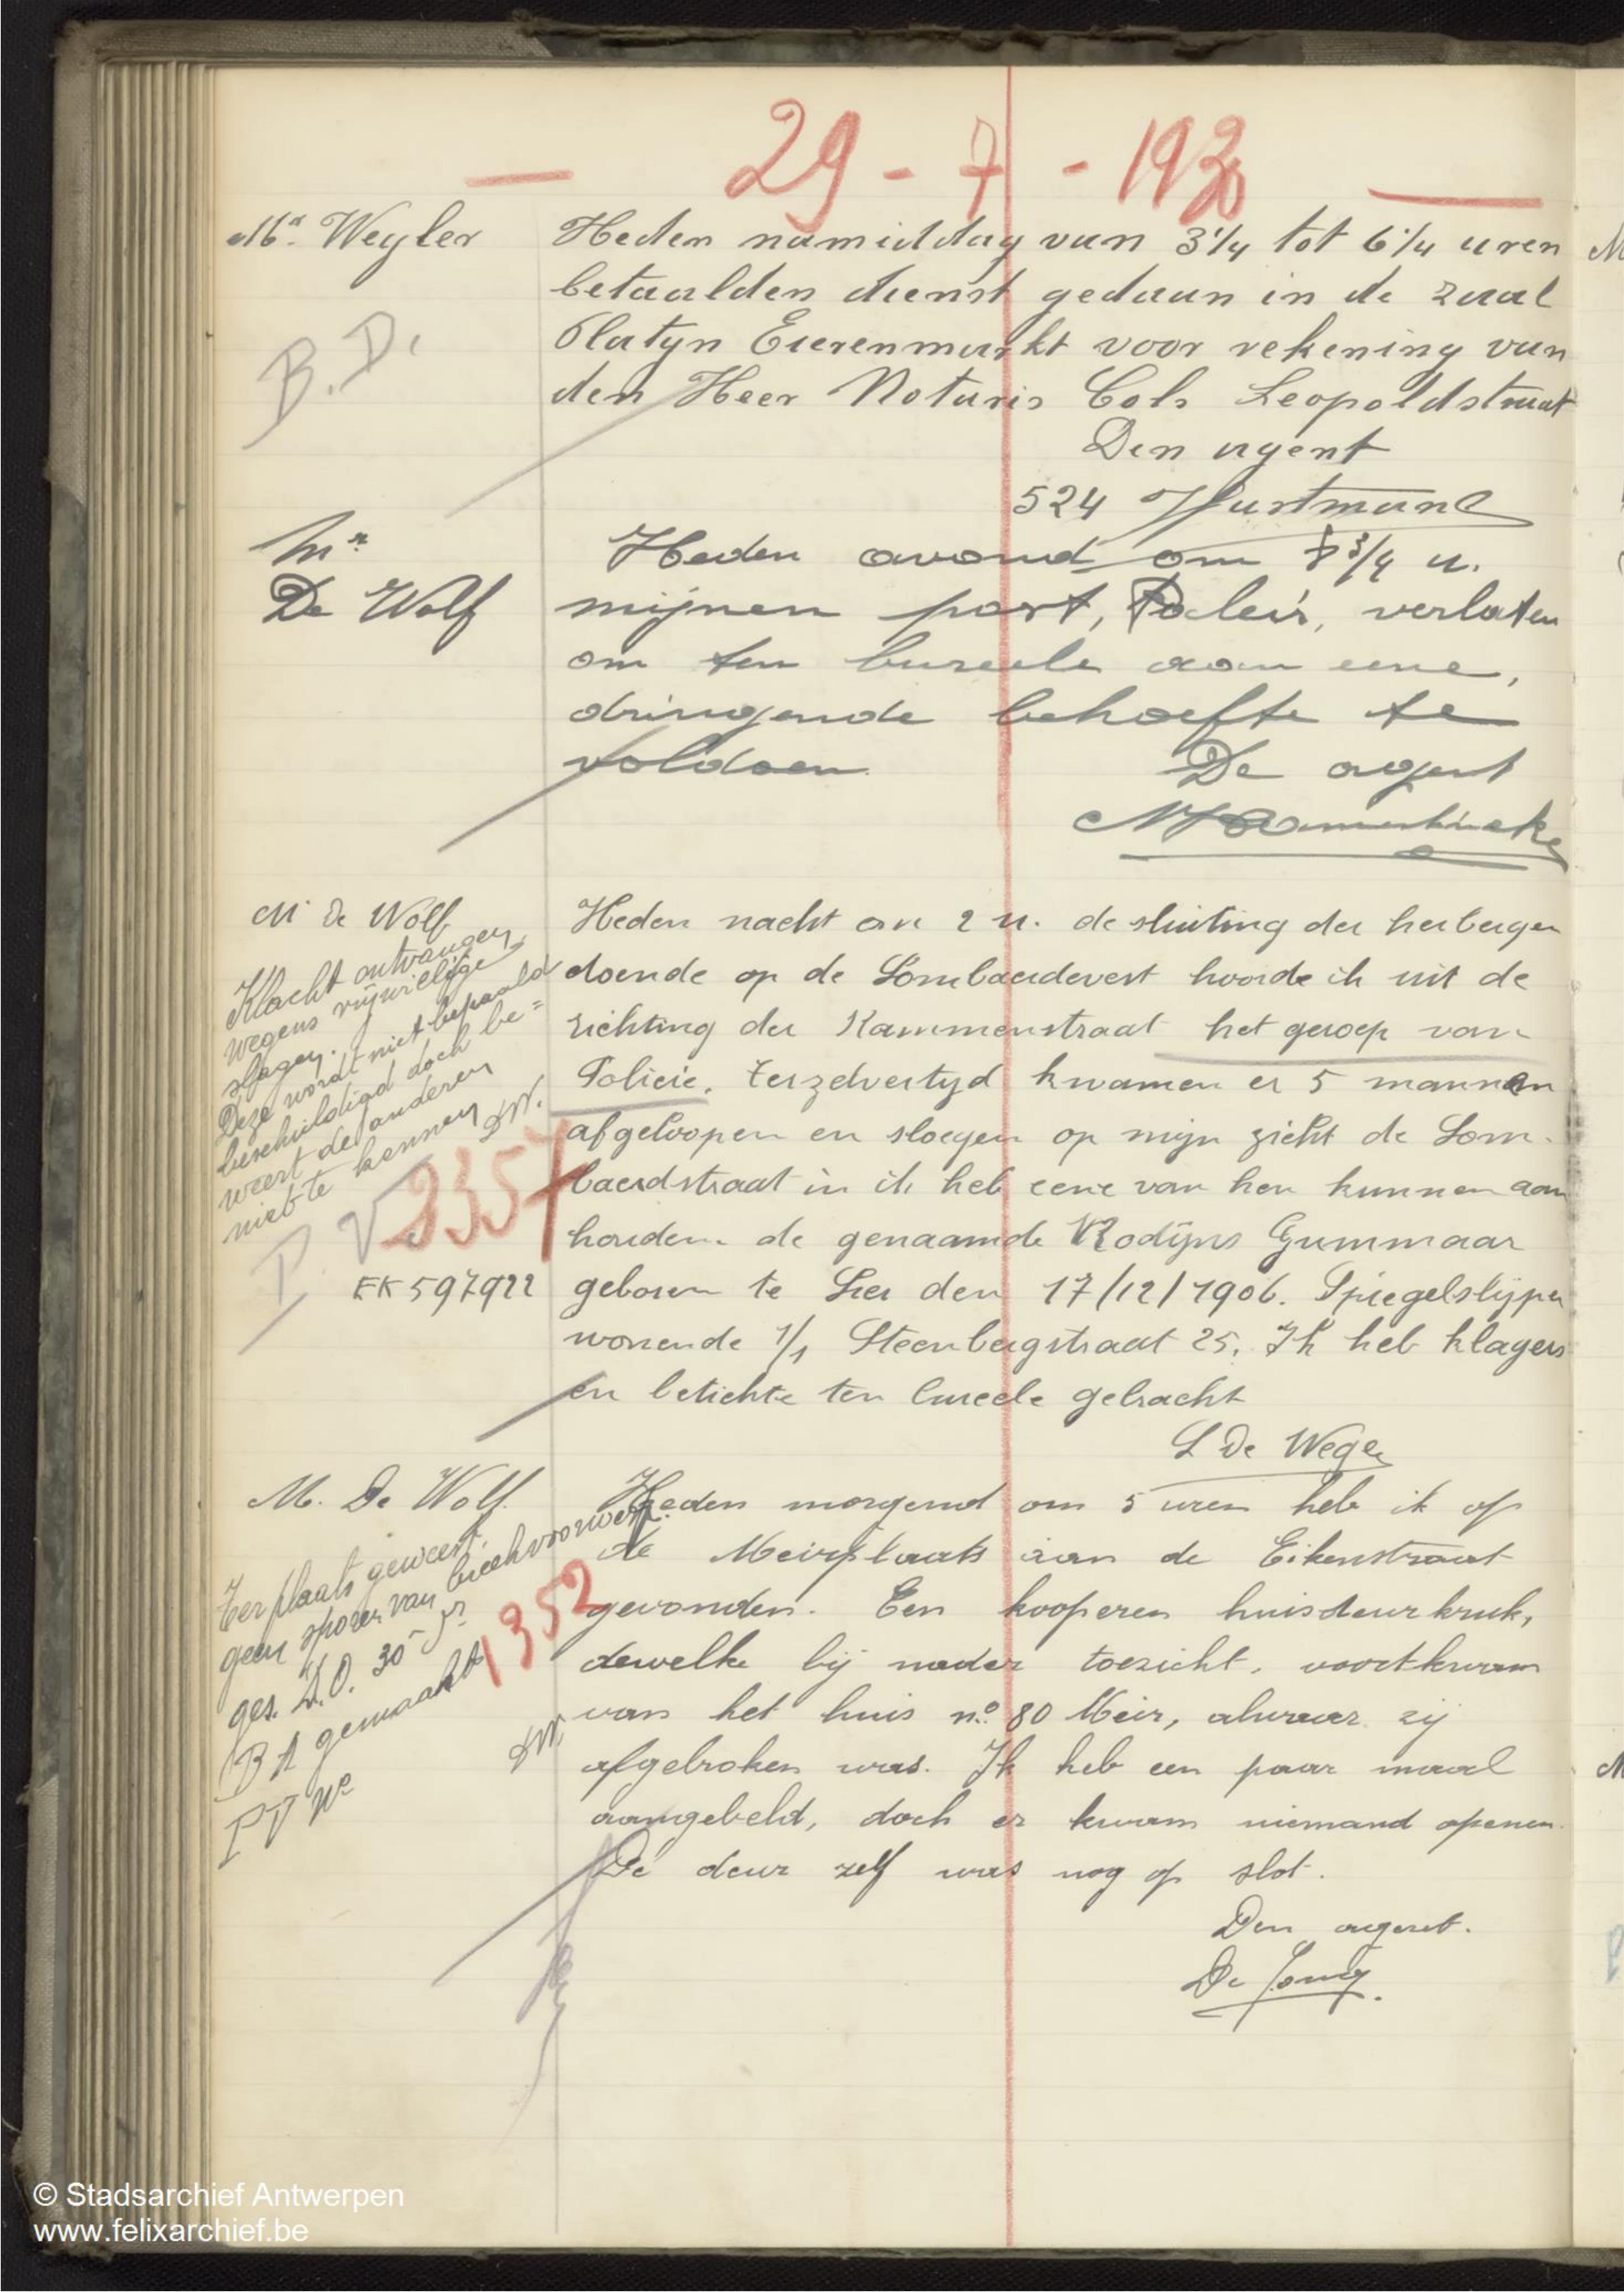 29 - 7 - 1930
Mr. Weyler
B. D.
Heden namiddag van 3 1/4 tot 6 1/4 uren
betaalden dienst gedaan in de zaal
Platyn Eierenmarkt voor rekening van
den Heer Notaris Cols Leopoldstraat
Den agent
524 Hartmann
Mr
De Wolf
Heden avond om 8 3/4 u.
mijnen post, Paleis, verlaten
om ten bureele aan eene,
dringende behoefte te
voldoen.
De agent
M De Wolf
Klacht ontvangen
wegens vrijwillige
slagen.
Deze wordt niet bepaald
beschuldigd doch be=
weert de anderen
niet te kennen
DW.
P. V 2357
EK 597922
Heden nacht om 2 u. de sluiting der herbergen
doende op de Lombaerdevest hoorde ik uit de
richting der Kammenstraat het geroep van
Policie. terzelvertyd kwamen er 5 mannen
afgeloopen en sloegen op mijn zicht de Lom-
baerdstraat in ik heb eene van hen kunnen aan
houden. de genaamde Rodijns Gummaar
geboren te Lier den 17/12/1906. Spiegelslijper
wonende t/s Steenbergstraat 25. Ik heb klagers
en betichte ten bureele gebracht
L De Weger
M. De Wolf.
Ter plaats geweest.
geen sporen van braakvoorwerp.
ges. D.O. 30 - fr
BA gemaakt
PV Ne
1352
DW.
Heden morgend om 5 uren heb ik op
de Meirplaats aan de Eikenstraat
gevonden. Een kooperen huisdeurkruk,
dewelke bij nader toezicht, voortkwam
van het huis no. 80 Meir, alwaar zij
afgebroken was. Ik heb een paar maal
aangebeld, doch er kwam niemand openen.
De deur zelf was nog op slot.
Den agent.
De Jong.
© Stadsarchief Antwerpen
www.felixarchief.be